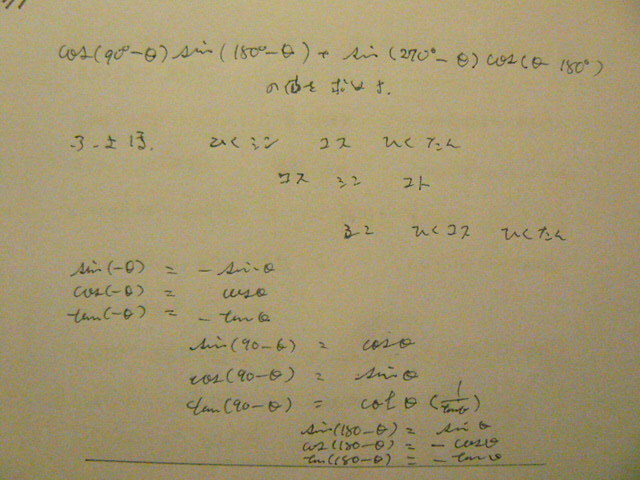 cos(90°-θ) sin(180°-θ) + sin(270°-θ) cos(θ 180°)
の値を求めよ.
ひくシン コス ひくたん
コス シン コト
ひくコス ひくたん
sin(-θ) = - sinθ
cos(-θ) = cosθ
tan(-θ) = - tanθ
sin(90-θ) = cosθ
cos(90-θ) = sinθ
tan(90-θ) = cotθ (1/tanθ)
sin(180-θ) = sinθ
cos(180-θ) = - cosθ
tan(180-θ) = - tanθ